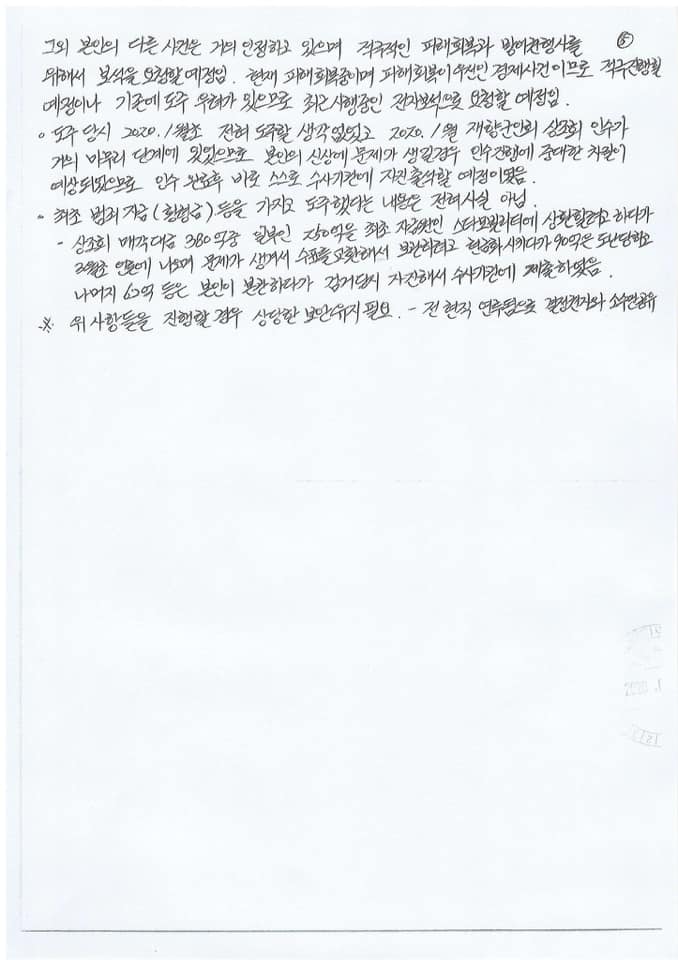 ⑤
그외 본인의 다른 사건은 거의 인정하고 있으며 적극적인 피해회복과 방어권행사를
위해서 보석을 요청할 예정임. 현재 피해회복중이며 피해회복이 우선인 경제사건이므로 적극진행할
예정이나 기존에 도주 우려가 있으므로 최근시행중인 전자보석으로 요청할 예정임.
○ 도주 당시 2020.1월초 전혀 도주할 생각 없었고 2020.1월 재향군인회 상조회 인수가
거의 마무리 단계에 있었으므로 본인의 신상에 문제가 생길경우 인수진행에 중대한 차질이
예상되었으므로 인수 완료후 바로 스스로 수사기관에 자진출석할 예정이었음.
○ 최초 범죄자금(횡령금)등을 가지고 도주했다는 내용은 전혀사실 아님.
- 상조회 매각대금 380억중 일부인 억을 최초 자금원인 스타모빌리티에 상환할려고 하다가
3월초 언론에 나오며 문제가 생겨서 수표를 교환해서 보관하려고 현금화시키다가 90억은 도난당하고
나머지 62억 등은 본인이 보관하다가 검거당시 자진해서 수사기관에 제출하였음.
※ 위 사항들을 진행할 경우 상당한 보안유지필요. - 전현직 연루됨으로 결정권자와 소수만공유
2020.1